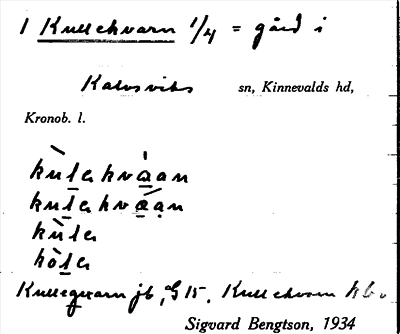 1 Kullekvarn 1/4 = gård i
Kalvsviks sn, Kinnevalds hd,
Kronob. l.
kùlekváan
kulekvaan
kùle
kòle
Kulleqvarn jb, G 15. Kullekvarn
Sigvard Bengtson, 1934